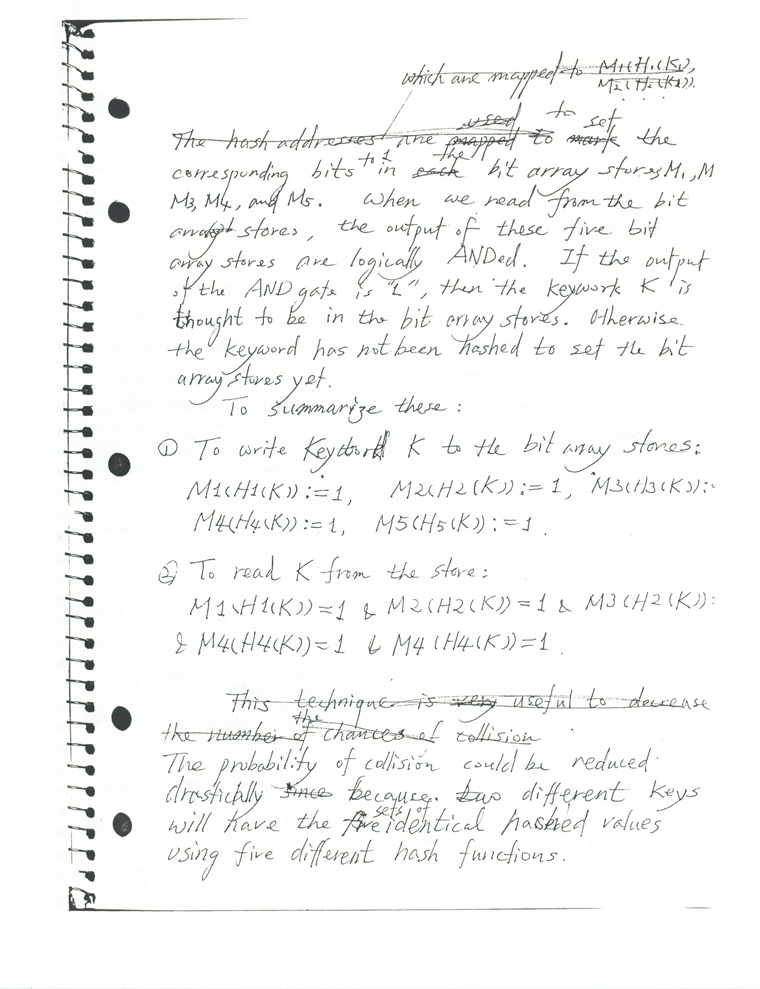 which are mapped to M1(H1(K)),
M2(H2(K)).
used to set
The hash addresses are mapped to mark the
to 1 the
corresponding bits in each bit array stores M1, M
M3, M4, and M5. When we read from the bit
array stores, the output of these five bit
array stores are logically ANDed. If the output
of the AND gate is "1", then the keywork K is
thought to be in the bit array stores. Otherwise
the keyword has not been hashed to set the bit
array stores yet.
To summarize these:
① To write keyword K to the bit array stores:
M1(H1(K)):=1, M2(H2(K)):=1, M3(H3(K)):
M4(H4(K)):=1, M5(H5(K)):=1.
② To read K from the store:
M1(H1(K))=1 & M2(H2(K))=1 & M3(H2(K)):
& M4(H4(K))=1 & M4(H4(K))=1.
This technique is very useful to decrease
the
the number of chances of collision
The probability of collision could be reduced
drastically since because two different keys
sets of
will have the five identical hashed values
using five different hash functions.